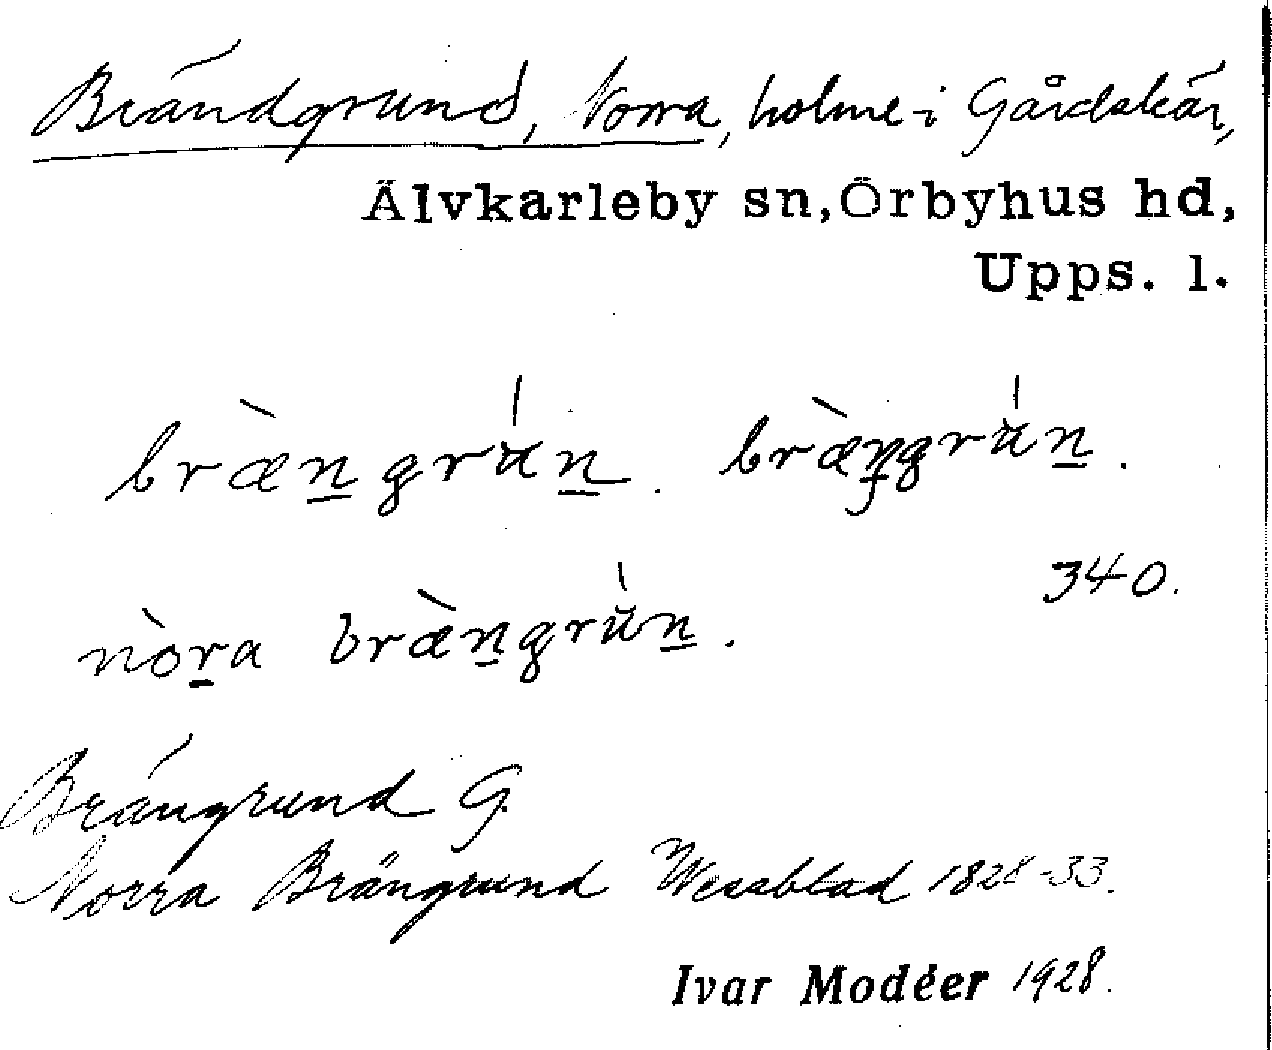 Brändgrund, Norra, holme i Gårdskär,
Älvkarleby sn, Örbyhus hd,
Upps. l.
bræ̀n̲grú̆n̲. bræ̀ŋgrú̆n̲.
340.
nòr̲a bræ̀n̲grú̆n̲.
Brängrund G.
Norra Brängrund Wessblad 1828-33.
Ivar Modéer 1928.